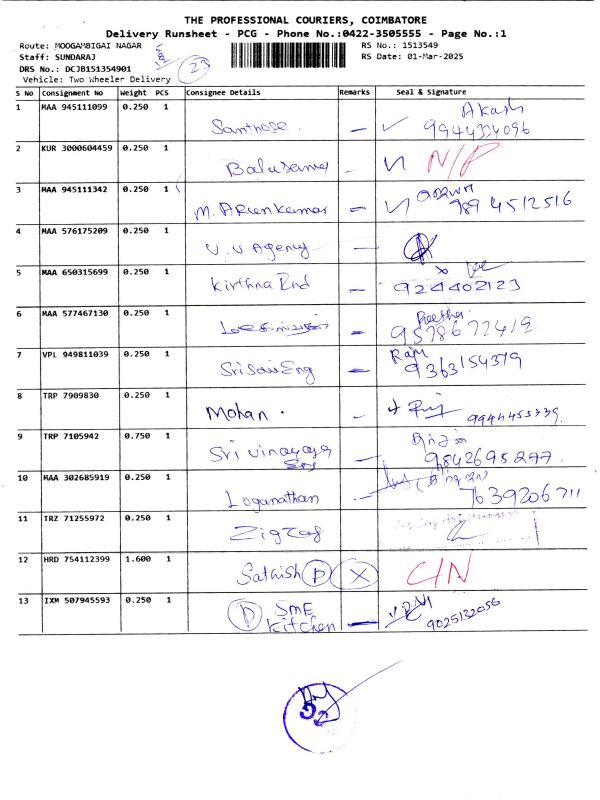 THE PROFESSIONAL COURIERS, COIMBATORE
Delivery Runsheet - PCG - Phone No.:0422-3505555 - Page No.:1
Route: MOOGAMBIGAI NAGAR RS No.: 1513549
Staff: SUNDARAJ RS Date: 01-Mar-2025
DRS No.: DCJB151354901
Vehicle: Two Wheeler Delivery
23
S No Consignment No Weight PCS Consignee Details Remarks Seal & Signature
1 MAA 945111099 0.250 1 Santhose. — Akash
9944334096
2 KUR 3000604459 0.250 1 — N/P
3 MAA 945111342 0.250 1 M. Arunkumar —
789 4512516
4 MAA 576175209 0.250 1 V.V Agency —
5 MAA 650315699 0.250 1 Kirthna End —
9244402123
6 MAA 577467130 0.250 1 — Preetha
9578677412
7 VPL 949811039 0.250 1 Sri Sai Eng — Raju
9363154379
8 TRP 7909830 0.250 1 Mohan. — 9944455339.
9 TRP 7105942 0.750 1 Sri Vinayaga
Eng — 9842695277.
10 MAA 302685919 0.250 1 Loganathan
7639206711
11 TRZ 71255972 0.250 1 Zigzag —
12 HRD 754112399 1.600 1 Sathish P X C/N
13 IXM 507945593 0.250 1 D SME
Kitchen — 9025132056